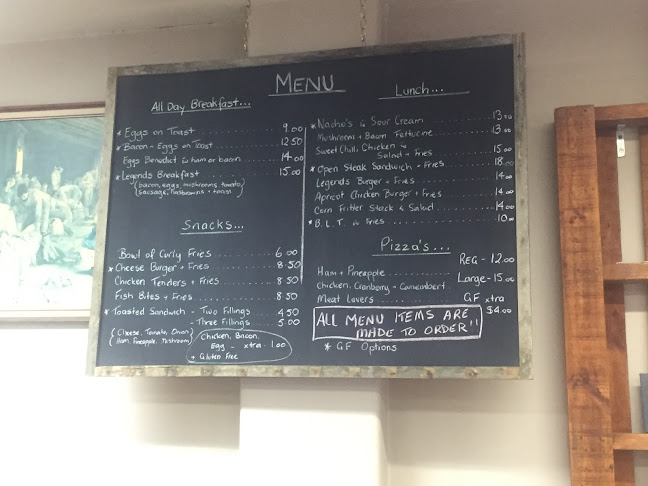 MENU
All Day Breakfast...
* Eggs on Toast 9.00
* Bacon - Eggs on Toast 12.50
Eggs Benedict w ham or bacon 14.00
* Legends Breakfast 15.00
(bacon, eggs, mushrooms, tomato
sausage, hashbrowns + toast)
Snacks...
Bowl of Curly Fries 6.00
* Cheese Burger + Fries 8.50
Chicken Tenders + Fries 8.50
Fish Bites + Fries 8.50
* Toasted Sandwich - Two Fillings 4.50
- Three Fillings 5.00
(Cheese, Tomato, Onion)
(Ham, Pineapple, Mushroom)
Chicken, Bacon,
Egg - xtra 1.00
+ Gluten Free
Lunch...
* Nacho's & Sour Cream 13.00
Mushrooms + Bacon Fettucine 13.00
Sweet Chilli Chicken
Salad + Fries 15.00
* Open Steak Sandwich + Fries 18.00
Legends Burger + Fries 14.00
Apricot Chicken Burger + Fries 14.00
Corn Fritter Stack & Salad 14.00
* B.L.T. & Fries 10.00
Pizza's...
REG - 12.00
Ham + Pineapple
Large - 15.00
Chicken, Cranberry - Camembert
Meat Lovers GF xtra
$4.00
ALL MENU ITEMS ARE
MADE TO ORDER!!
* GF Options